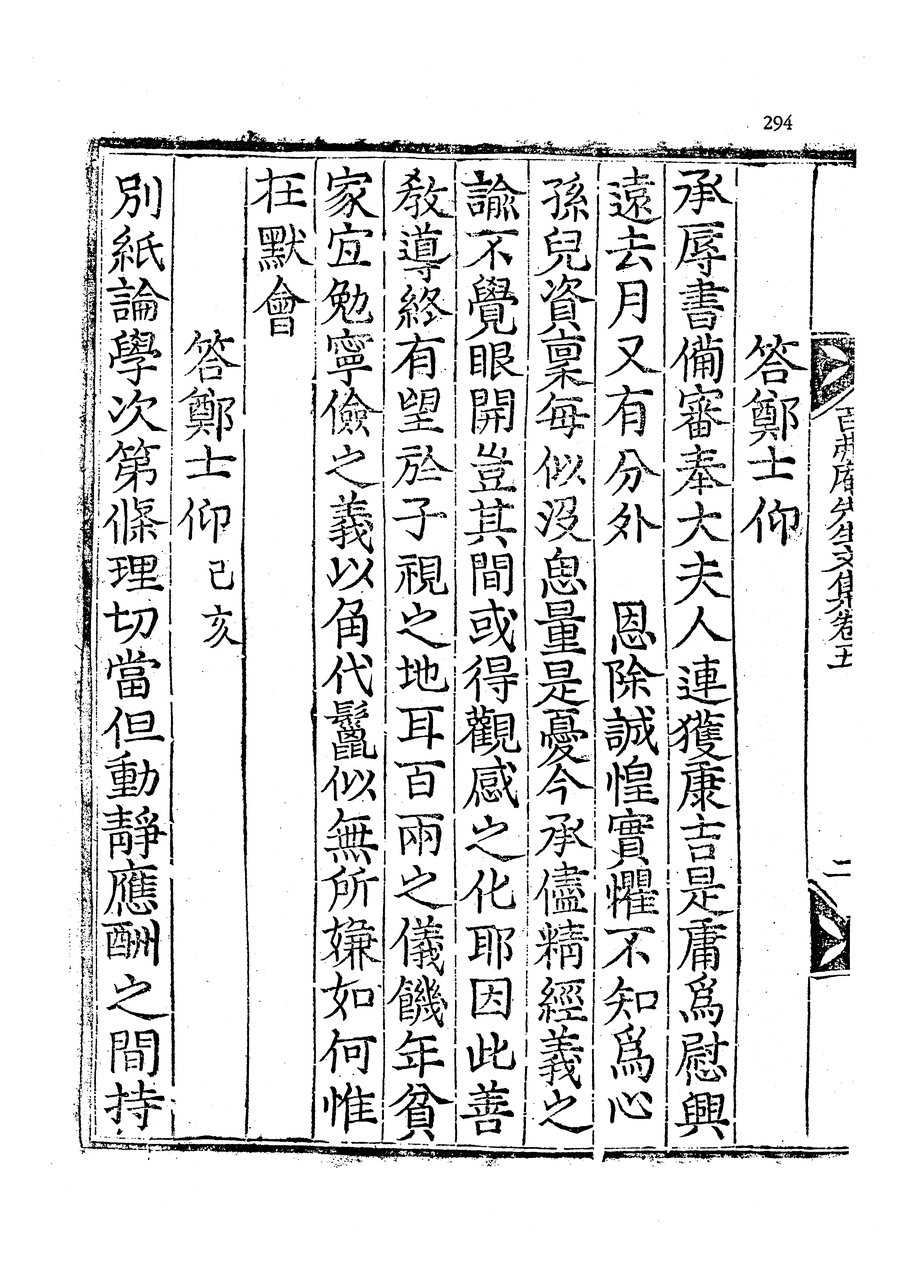 294
百弗庵先生文集卷五
二
答鄭士仰
承辱書備審奉大夫人連獲康吉是庸爲慰興
遠去月又有分外　恩除誠惶實懼不知爲心
孫兒資稟每似沒思量是憂今承儘精經義之
諭不覺眼開豈其間或得觀感之化耶因此善
敎導終有望於子視之地耳百兩之儀饑年貧
家宜勉寧儉之義以角代鬣似無所嫌如何惟
在默會
答鄭士仰 己亥
別紙論學次第條理切當但動靜應酬之間持